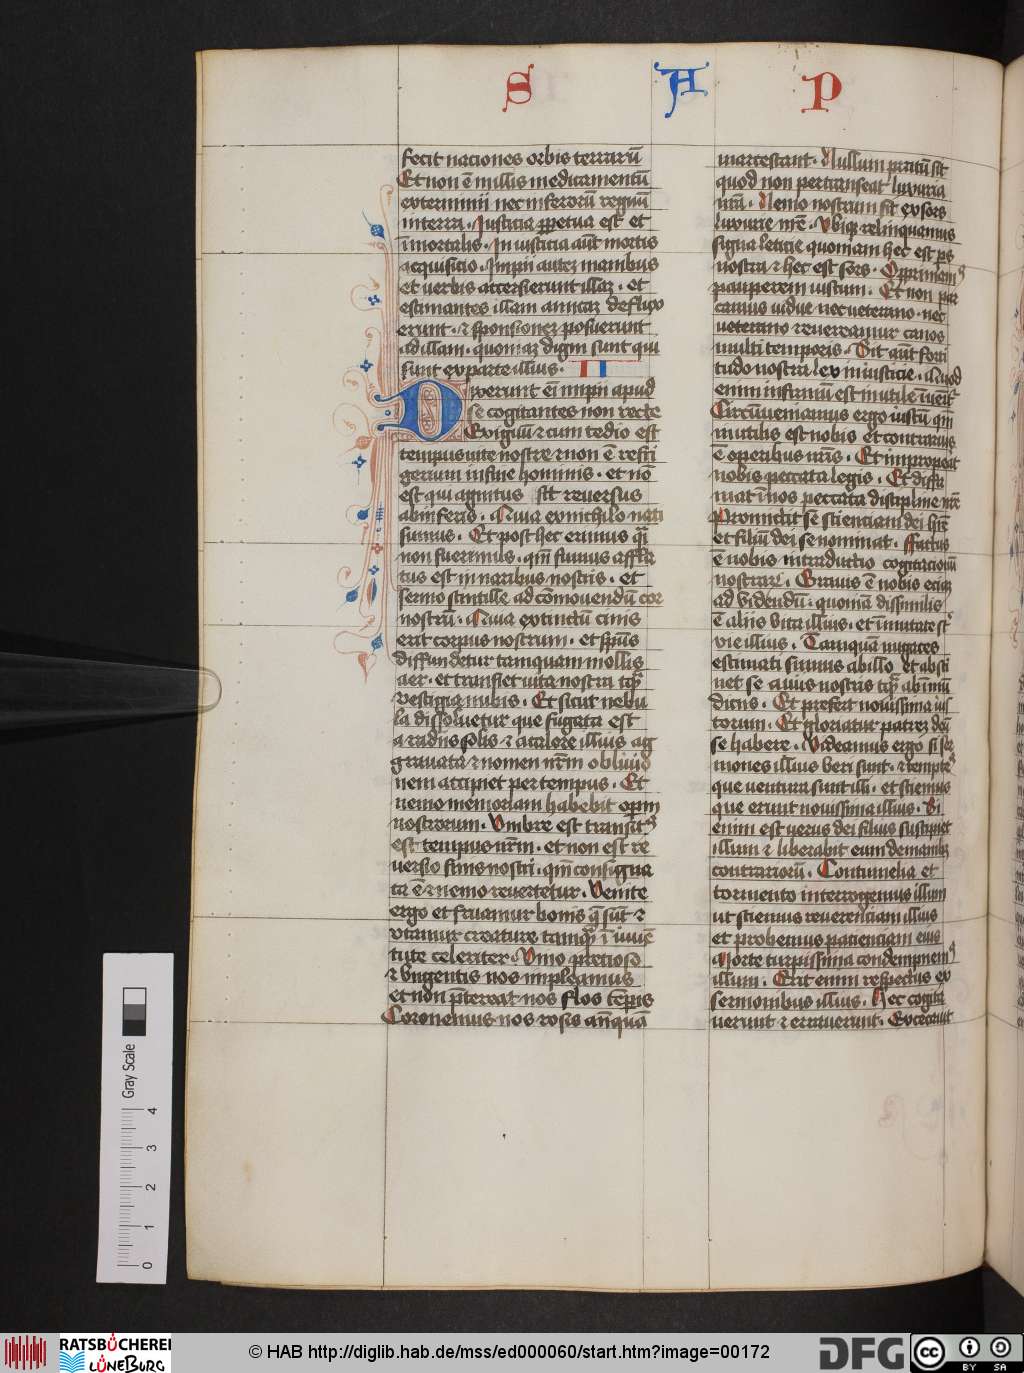 S A P
fecit naciones orbis terrarū
Et non ē in illis medicamentū
exterminii nec inferorū regnū
in terra. Iusticia ꝑpetua est et
īmortalis. Iniusticia aūt mortis
acquisicio. Impii autez manibus
et verbis accersierunt illaz. et
estimantes illam amicaz defluxe
erunt. ⁊ sponsionez posuerunt
ad illam. quoniaz digni sunt qui
sunt ex parte illius. II
Dixerunt eī impii apud
se cogitantes non recte
Exiguū ⁊ cum tedio est
tempus vite nostre ⁊ non ē refri
gerium in fine hominis. et nō
est qui agnitus sit reversus
ab inferis. Quia ex nichilo nati
sumus. Et post hec erimus qͣi
non fuerimus. qm̄ fumus affla
tus est in naribus nostris. et
sermo scintille ad cōmovendū cor
nostrū. Quia extinctū cinis
erit corpus nostrum. et sp̄us
diffundetur tamquam mollis
aer. et transiet vita nostra tqͣ
vestigia nubis. Et sicut nebu
la dissolvetur que fugata est
a radiis solis ⁊ a calore illius ag
gravata ⁊ nomen nr̄m obliuio
nem accipiet per tempus. Et
nemo memoriam habebit operū
nostrorum. Umbre est transitꝰ
est tempus nr̄m. et non est re
versio finis nostri. qm̄ consigna
ta ē ⁊ nemo revertetur. Venite
ergo et fruamur bonis q̄ sūt ⁊
utamur creatura tamqͣ ī iuvē
tute celeriter. Vino precioso
⁊ ungentis nos impleamus
et non p̄tereat nos flos tēpis
Coronemus nos rosis anqͣuā
marcescant. Nullum pratū sit
quod non pertranseat luxuria
nr̄a. Nemo nostrum sit exsors
luxurie nr̄e. Ubiqꝫ relinquamus
signa leticie quoniam hec est ps
nostra ⁊ hec est sors. Opprimamꝰ
pauperem iustum. Et non par
camus vidue nec veterano. nec
veterano revereamur canos
multi temporis. Sit aūt forti
tudo nostra lex iniusticie. Quod
enim infirmū est inutile īvenitᷣ
Circūveniamus ergo iustū qm̄
inutilis est nobis et contrarius
ē operibus nr̄is. Et improperat
nobis peccata legis. Et diffa
mat ī nos peccata discipline nr̄e
Promittit se scienciam dei hr̄e
et filiū dei se nominat. Factus
ē nobis in traductio cogitacionū
nostrarū. Gravis ē nobis eciaz
ad videndū. quoniā dissimilis
ē aliis vita illius. et īmutate sͭ
vie illius. Tamquā nugaces
estimati sumus ab illo et absti
net se a viis nostris tqͣ ab īmū
diciis. Et prefert novissima ius
torum. Et gloriatur patrez deū
se habere. Videamus ergo si ser
mones illius veri sunt. ⁊ tempteꝰ
que ventura sunt illi. et sciemus
que erunt novissima illius. Si
enim est verus dei filius suscipiet
illum ⁊ liberabit eum de manibꝫ
contrariorū. Contumelia et
tormento interrogemus illum
ut sciemus reverenciam illius
et probemus pacienciam eius
Morte turpissima condempnemꝰ
illum. Erit enim respectus ex
sermonibus illius. Hec cogita
verunt ⁊ erraverunt. Excecavit
Gray Scale
0 1 2 3 4
RATSBÜCHEREI LÜNEBURG
© HAB http://diglib.hab.de/mss/ed000060/start.htm?image=00172
DFG
cc BY SA